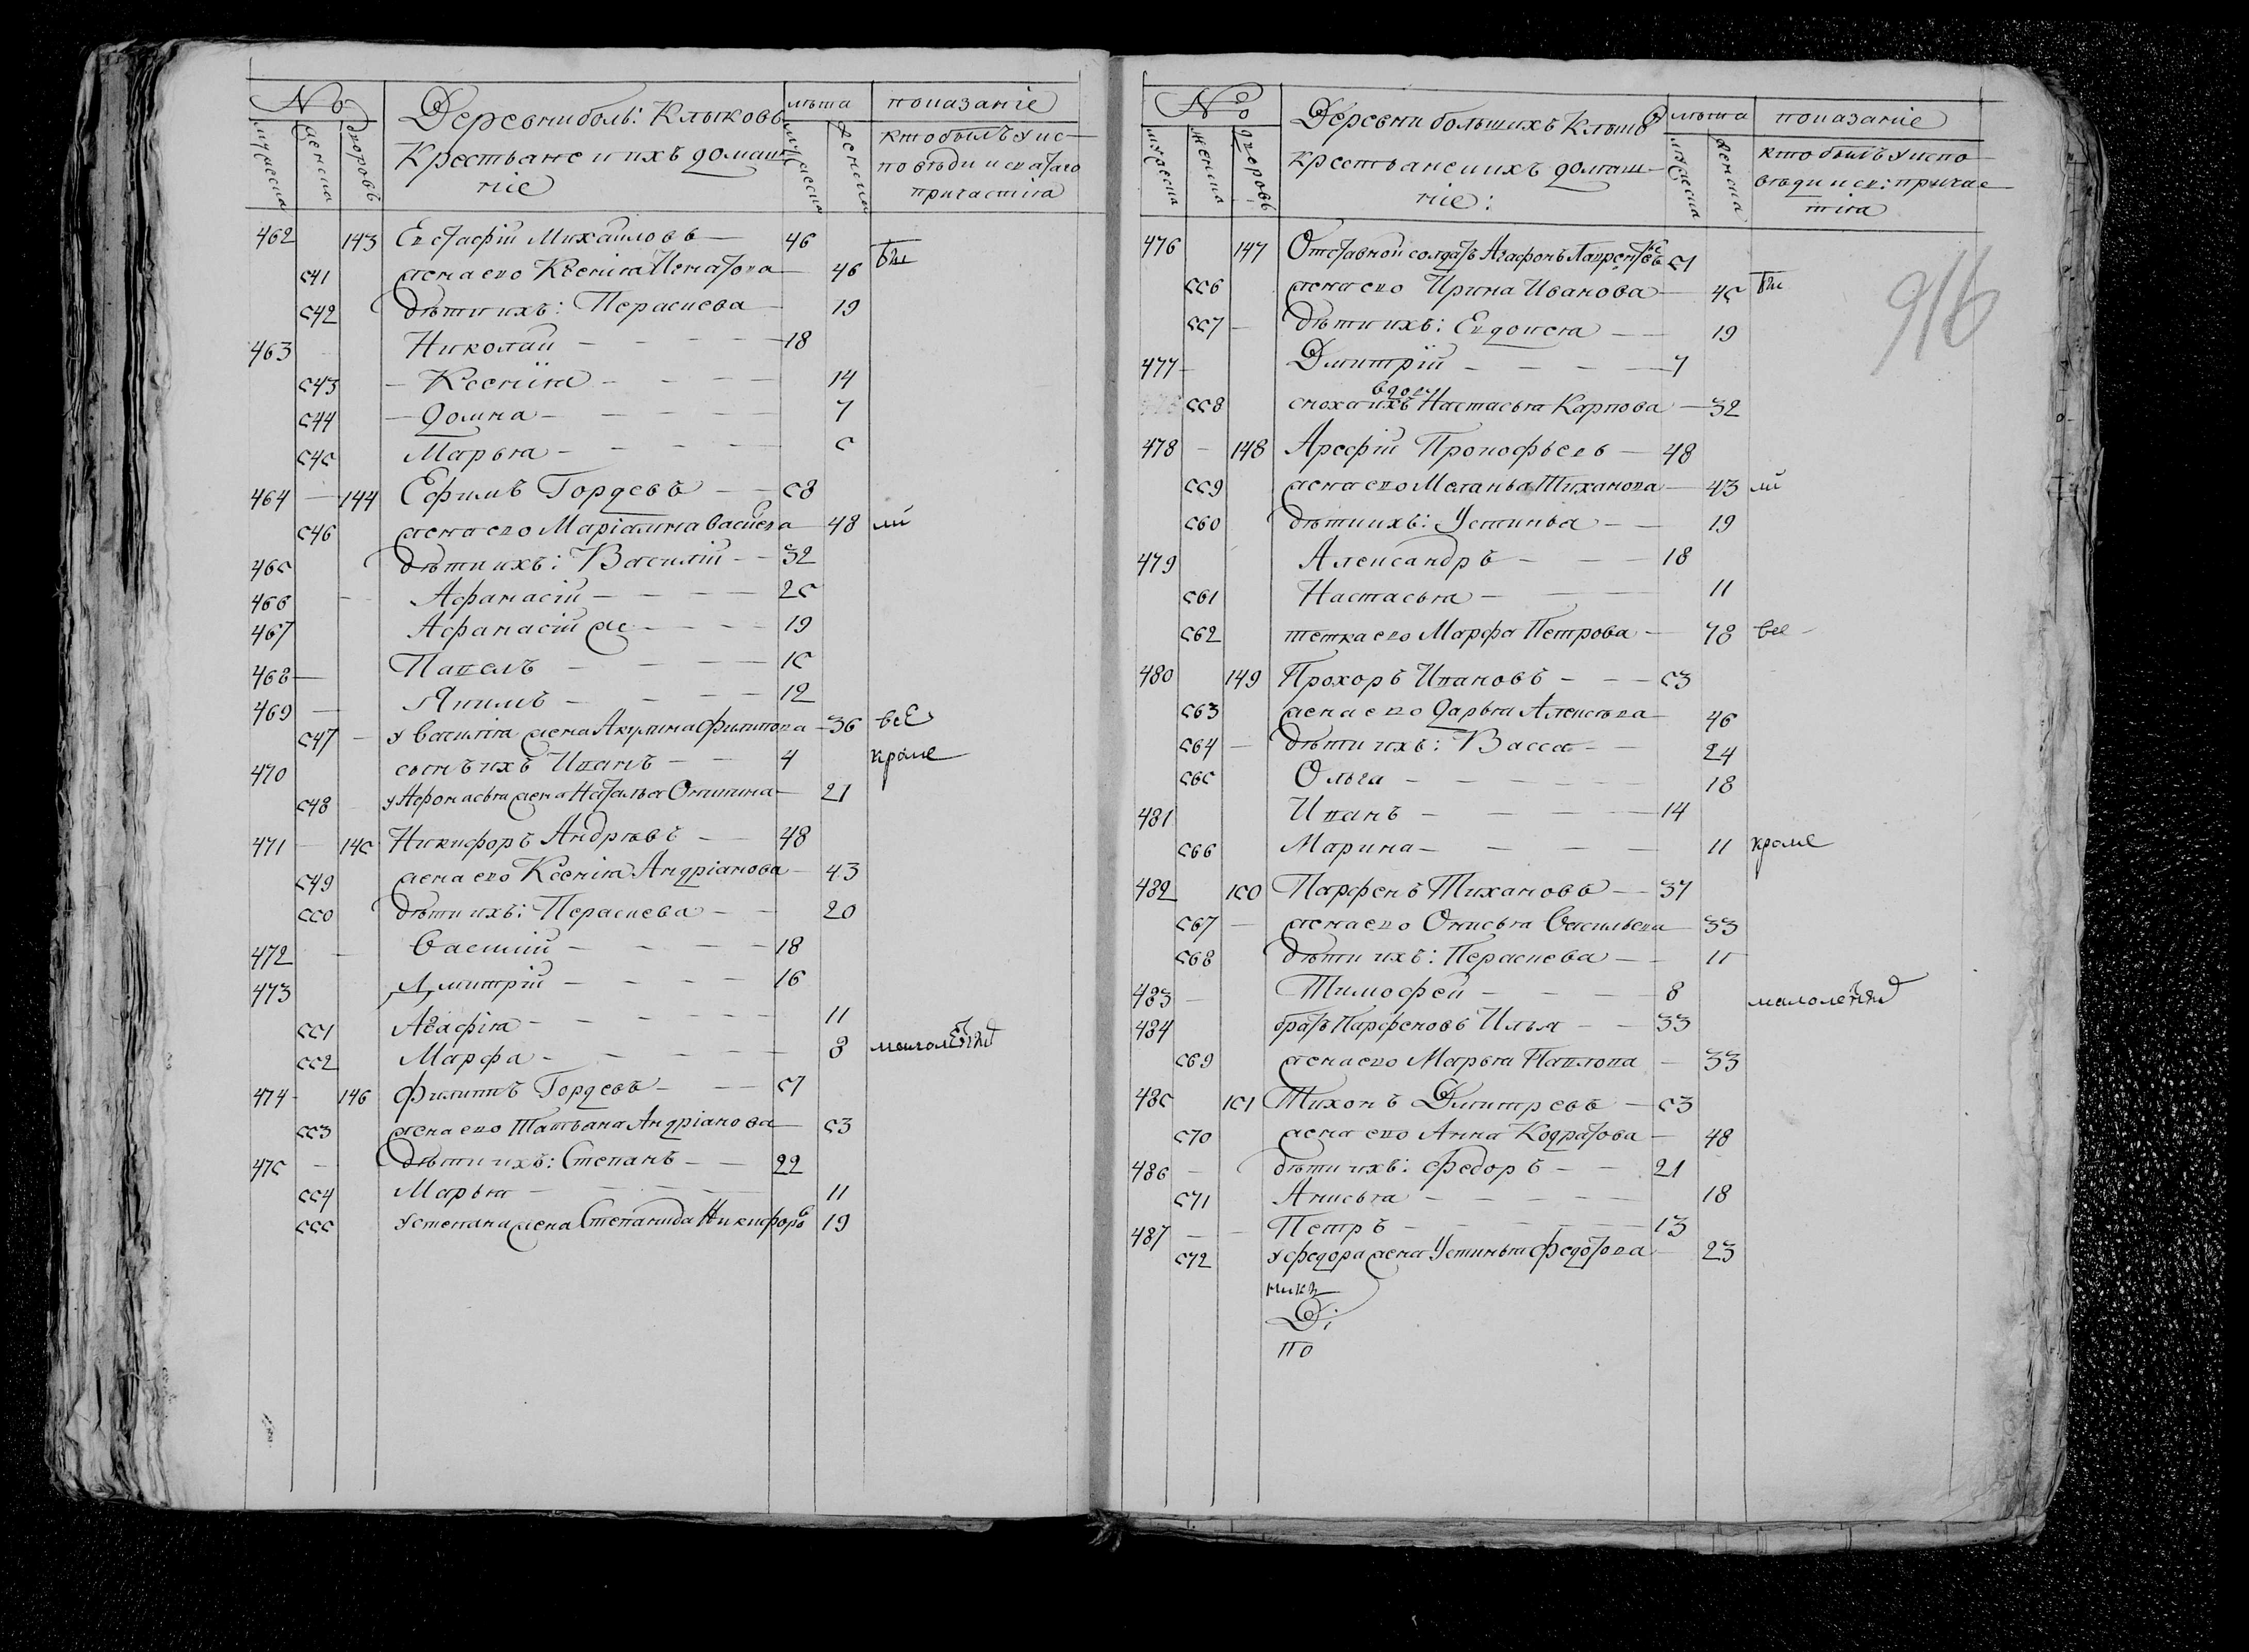 №
Деревни боль: Клыковъ
лѣта
показанїе
мужеска
женска
дворовъ
Крестьяне и ихъ домаш
нїе
мужеска
женска
кто былъ у ис-
повѣди и святаго
причастїя
462 143 Евстафїй Михаиловъ 46
541 жена его Ксенїя Игнатова 46 бы
542 дѣти ихъ: Пераскева 19
463 Николай 18
543 Ксенїя 14
544 Домна 7
545 Марья 5
464 144 Ефимъ Гордеевъ 58
546 жена его Марїамна 48 ли
465 дѣти ихъ: Василїй 32
466 Афанасїй 25
467 Афанасїй же 19
468 Павелъ 15
469 Якимъ 12
547 у Василїя жена Акулина Филипова 36 все
470 сынъ ихъ Иванъ 4 кроме
548 у Афонасья жена Наталья Онисимна 21
471 145 Никифоръ Андрѣевъ 48
549 жена его Ксенїя Андрїанова 43
550 дѣти ихъ: Пераскева 20
472 Василїй 18
473 Дмитрїй 16
551 Агафїя 11
552 Марфа 8 малолетныхъ
474 146 Филиппъ Гордеевъ 57
553 жена его Татьяна Андрїанова 53
475 дѣти ихъ: Степанъ 22
554 Марья 11
555 у Степана жена Степанида Никифорова 19
№
Деревни большихъ Клыко
в
лѣта
показанїе
мужеска
женска
дворовъ
крестьяне и ихъ домаш-
нїе:
мужеска
женска
кто былъ у испо-
вѣди и св: причас-
тїя
916
476 147 Отставной солдатъ Агафонъ Лаврентьевъ 51
556 жена его Ирина Иванова 45 бы
557 дѣти ихъ: Евдокея 19
477 Дмитрїй 7
вдова
558 сноха ихъ Настасья Карпова 32
478 148 Арефїй Прокофьевъ 48
559 жена его Меланья Тиханова 43 ли
560 дѣти ихъ: Устинья 19
479 Александръ 18
561 Настасья 11
562 тетка его Марфа Петрова 78 все
480 149 Прохоръ Ивановъ 53
563 жена его Дарья Алексѣева 46
564 дѣти ихъ: Васса 24
565 Ольга 18
481 Иванъ 14
566 Марина 11 кроме
482 150 Парфенъ Тихановъ 37
567 жена его Онисья Васильева 33
568 дѣти ихъ: Пераскева 11
483 Тимофей 8 малолетныхъ
484 братъ Парфеновъ Илья 33
569 жена его Марья Павлова 33
485 151 Тихонъ Дмитревъ 53
570 жена его Анна Кодратова 48
486 дѣти ихъ: Федоръ 21
571 Анисья 18
487 Петръ 13
572 у Федора жена Устинья Федотова 23
Д:
по